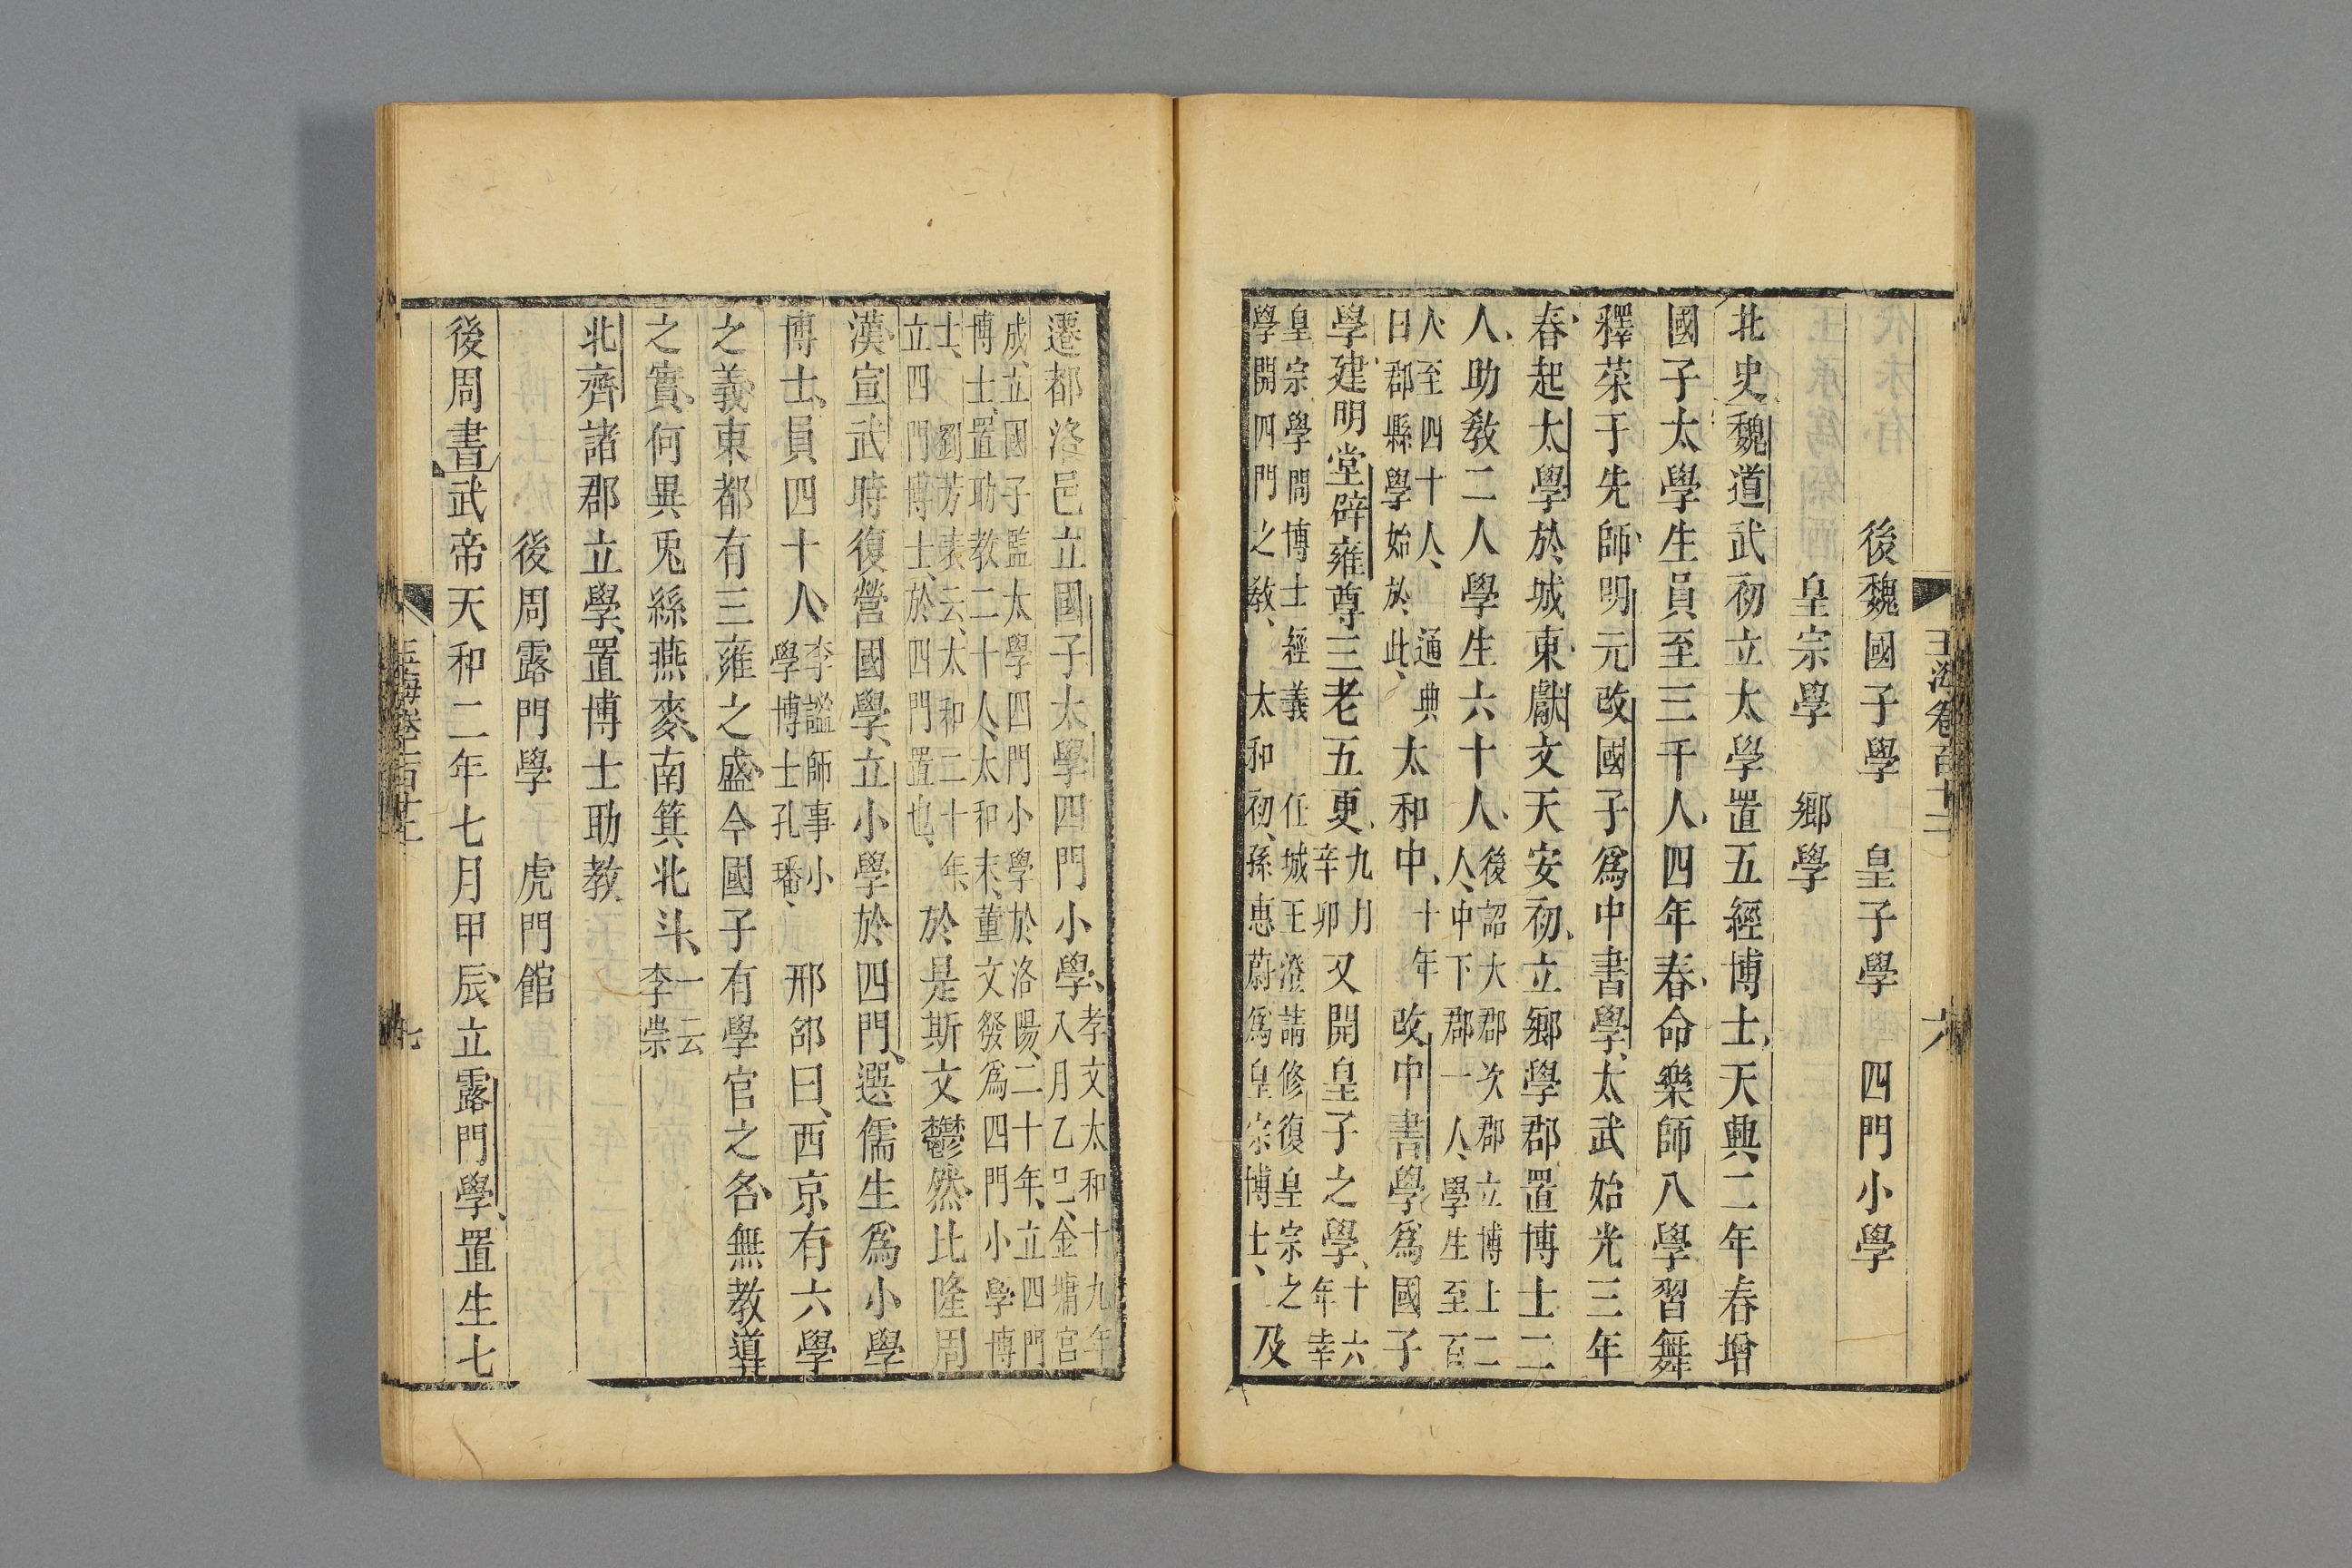 玉海卷百十二　六
後魏國子學　皇子學　四門小學
皇宗學　鄉學
北史魏道武初立太學置五經博士天興二年春增
國子太學生員至三千人四年春命樂師入學習舞
釋菜于先師明元改國子爲中書學太武始光三年
春起太學於城東獻文天安初立鄉學郡置博士二
人助教二人學生六十人後詔大郡次郡立博士二人中下郡一人學生至百
人至四十人　通典曰郡縣學始於此太和中十年改中書學爲國子
學建明堂辟雍尊三老五更九月辛卯又開皇子之學十六年幸
皇宗學問博士經義　任城王澄請修復皇宗之學開四門之教　太和初孫惠蔚爲皇宗博士及
遷都洛邑立國子太學四門小學孝文太和十九年八月乙巳金墉宮
成立國子監太學四門小學於洛陽二十年立四門博士置助教二十人太和末董文發爲四門小學博
士劉芳表云太和二十年立四門博士於四門置也於是斯文鬱然比隆周
漢宣武時復營國學立小學於四門選儒生爲小學
博士員四十人李謐師事小學博士孔璠　邢邵曰西京有六學
之義東都有三雍之盛今國子有學官之名無教導
之實何異兎絲燕麥南箕北斗一云李崇
北齊諸郡立學置博士助教
後周露門學　虎門館
後周書武帝天和二年七月甲辰立露門學置生七
玉海卷百十二　七